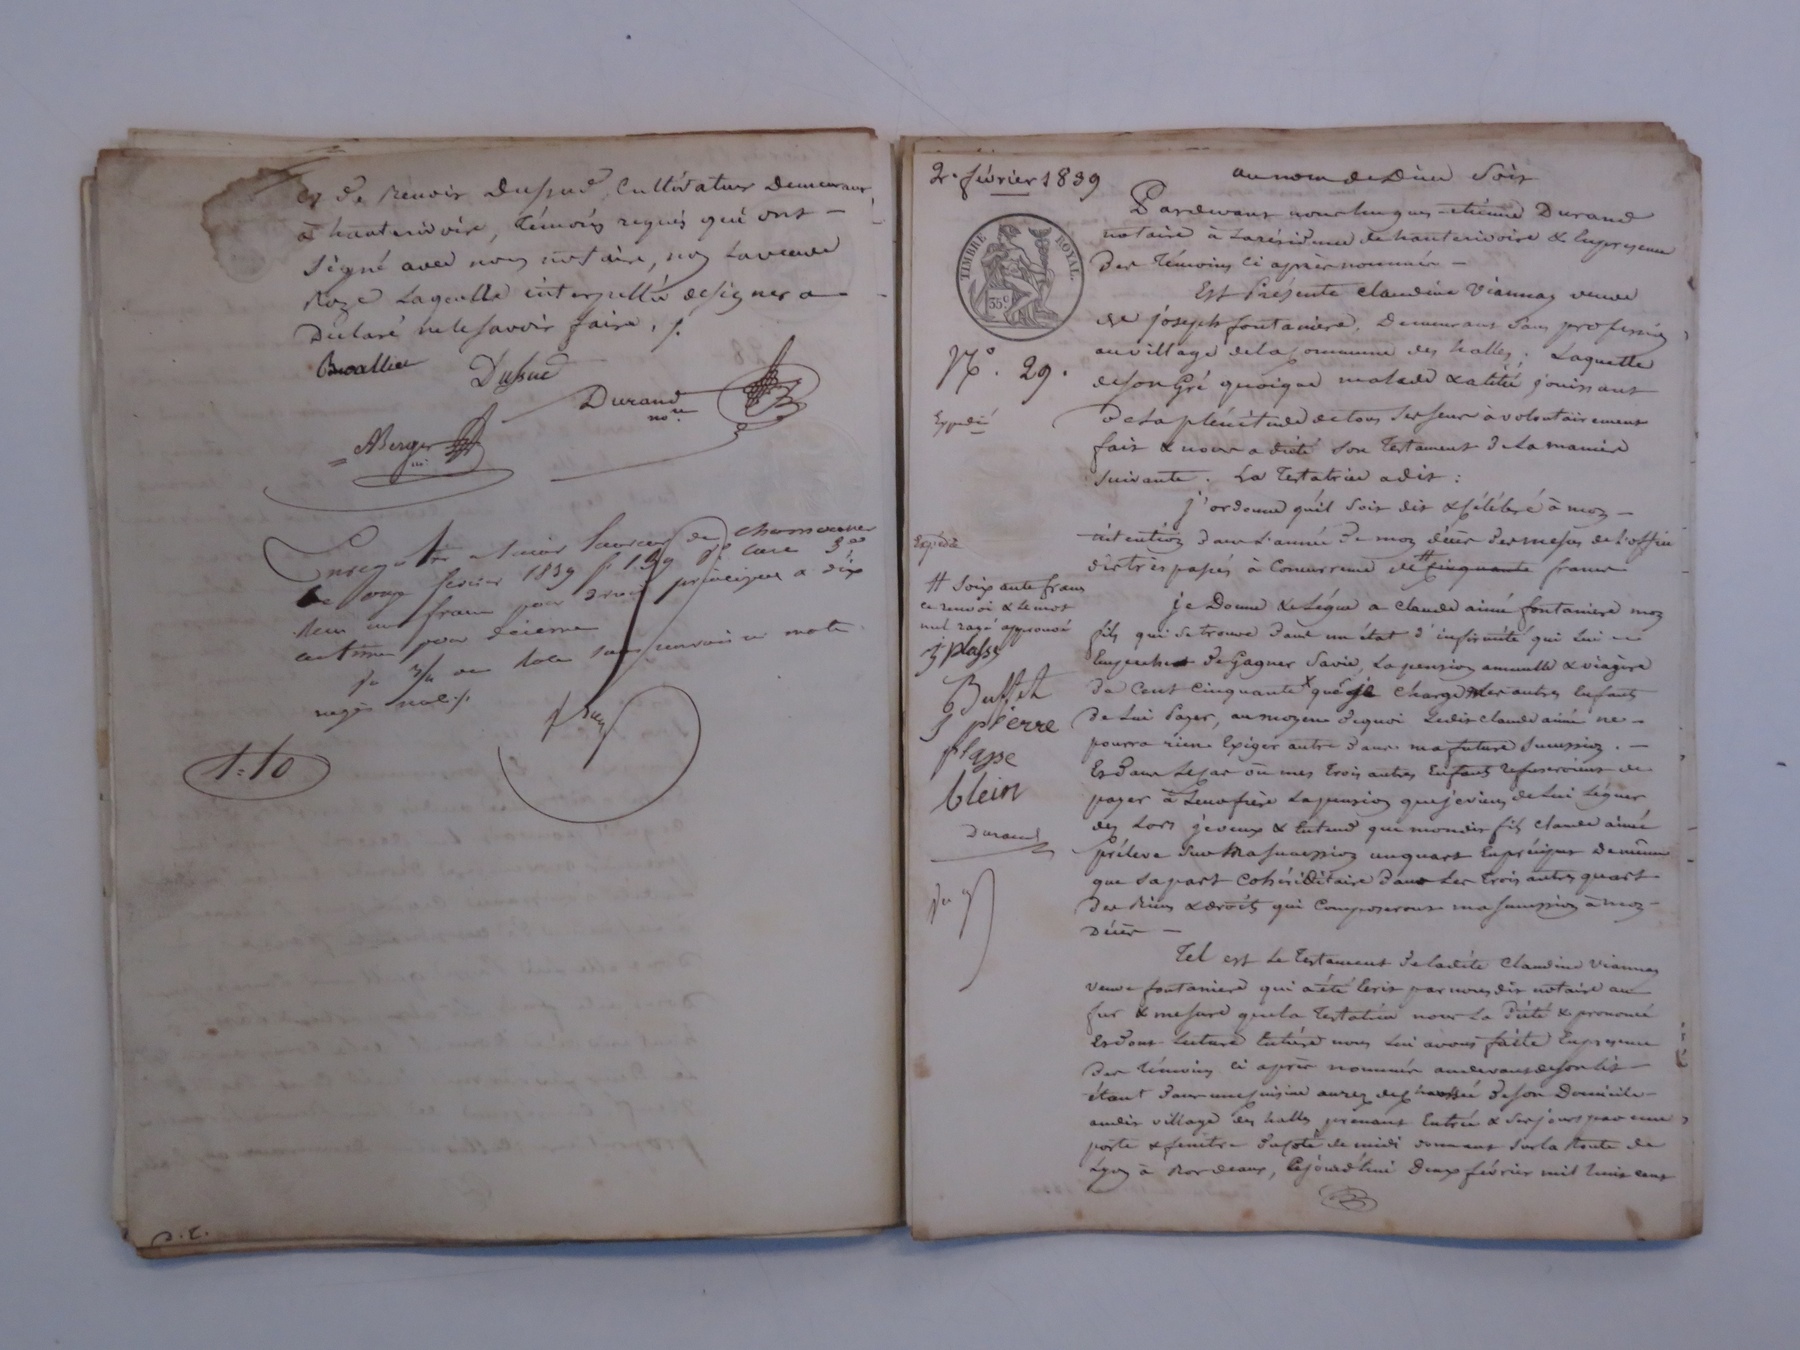 et de Benoit Dupud, Cultivateur Demeurant
à hauterivoire, témoins requis qui ont —
signé avec nous notaire, non la veuve
Roze laquelle interpellée de signer a
Déclaré ne le savoir faire.
Dubuc
Durand
nore
ABerger
Enregistré à Saint Laurent de chamousset
le onze fevrier 1839 f° 139 r° case 3
Reçu un franc pour droit principal & dix
centimes pour décime
rayés nul
1=10
2. février 1839
TIMBRE ROYAL.
35c
N°. 29.
Expédié
Expédié
# Soixante francs
ce renvoi & le mot
nul rayé approuvé
j plasse
Buffet
j pierre
plasse
blein
Durand
au nom de Dieu soit
Pardevant nous Jacques-étienne Durand
notaire à la résidence de hauterivoire & En presence
des témoins ci après nommés —
Est Présente claudine Viannay veuve
de joseph fontaniere, Demeurant sans profession
au village de la Commune des halles; Laquelle
de son Gré quoique malade & alitée jouissant
de la plénitude de tous ses sens à volontairement
fait & nous a dicté son Testament de la maniere
suivante. La Testatrice a dit :
j'ordonne qu'il soit dit & célébré à mon —
intention dans l'année de mon décès des messes de l'office
des trépassés à Concurrence de # cinquante francs
je Donne & Légue a claude aimé fontaniere mon
fils qui se trouve dans un état d'infirmité qui lui
Empeche de Gagner sa vie, La pension annuelle & viagère
de Cent cinquante x que je charge mes autres Enfants
de lui Payer, au moyen de quoi Ledit claude aimé ne —
pourra rien Exiger autre dans ma future succession. —
Et Dans Le cas où mes trois autres Enfants refuseroient de
payer à Leur frère La pension que je viens de lui Léguer,
des Lors je veux & Entend que mondit fils claude aimé
préleve sur Ma succession un quart En préciput De même
que sa part cohéréditaire dans Les trois autres quart
des Biens & droits qui Composeront ma succession à mon
décès —
Tel est Le Testament de ladite claudine Viannay
veuve fontaniere qui a été Ecrit par nous dit notaire au
fur & mesure que la Testatrice nous La dicté & prononcé
Et Dont Lecture Entière nous Lui avons faite En presence
des témoins ci après nommés au devant de son lit —
étant dans une cuisine au rez de chaussée de son Domicile
audit village des halles prenant Entrée & ses jours par une
porte & fenêtre du coté de midi donnant sur la Route de
Lyon à Bordeaux, Cejourd'hui deux février mil huit cent